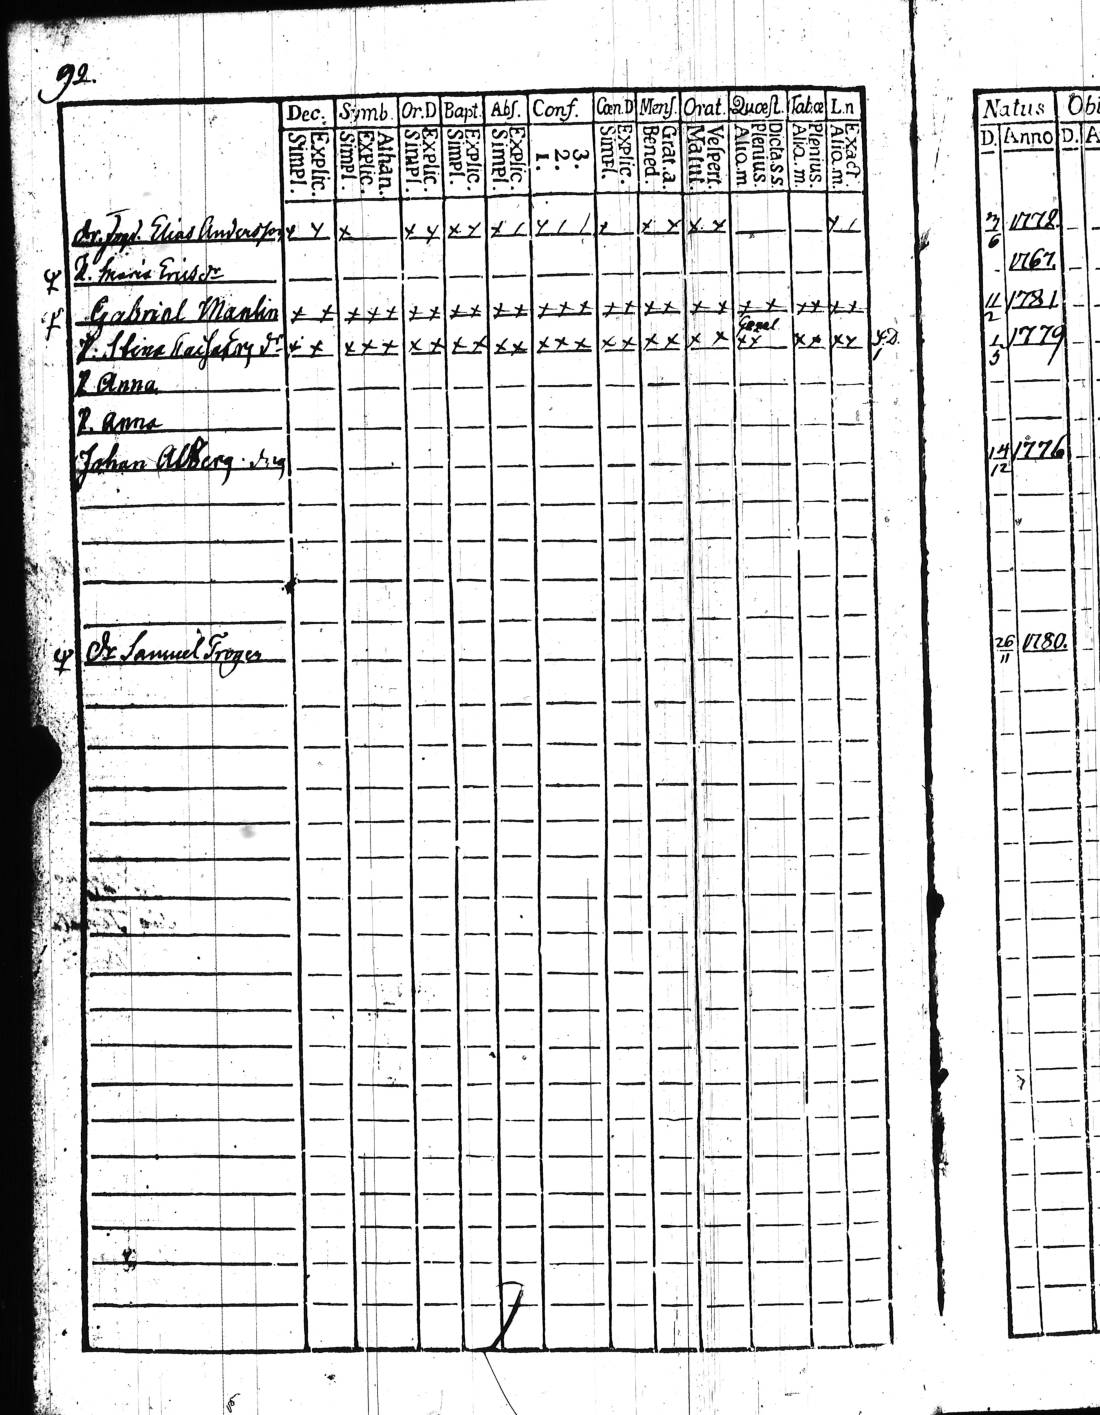 92.
Dec. Symb. Or.D Bapt. Abs. Conf. Cœn.D Mens. Orat. Quœst. Tabœ Ln Natus Obi
Simpl. Explic. Simpl. Explic. Athan. Simpl. Explic. Simpl. Explic. Simpl. Explic. 1. 2. 3. Simpl. Explic. Bened. Grat.a. Matut. Vespert. Aliq.m Plenius. Dicta.s.s. Aliq.m. Plenius. Aliq.m. Exact. D. Anno D. A
Elias Andersson x x x x x x x x x 3/6 1778.
Maria Ericsdr 1767.
Gabriel Manlin x x x x x x x x x x x x x x x x x x x x x x x x x 11/2 1781
P. Stina x x x x x x x x x x x x x x x x x x x x x x x x x 1/5 1779
P. Anna
P. Anna
Johan Alberg 14/12 1776
Dr Samuel Troger 26/11 1780.